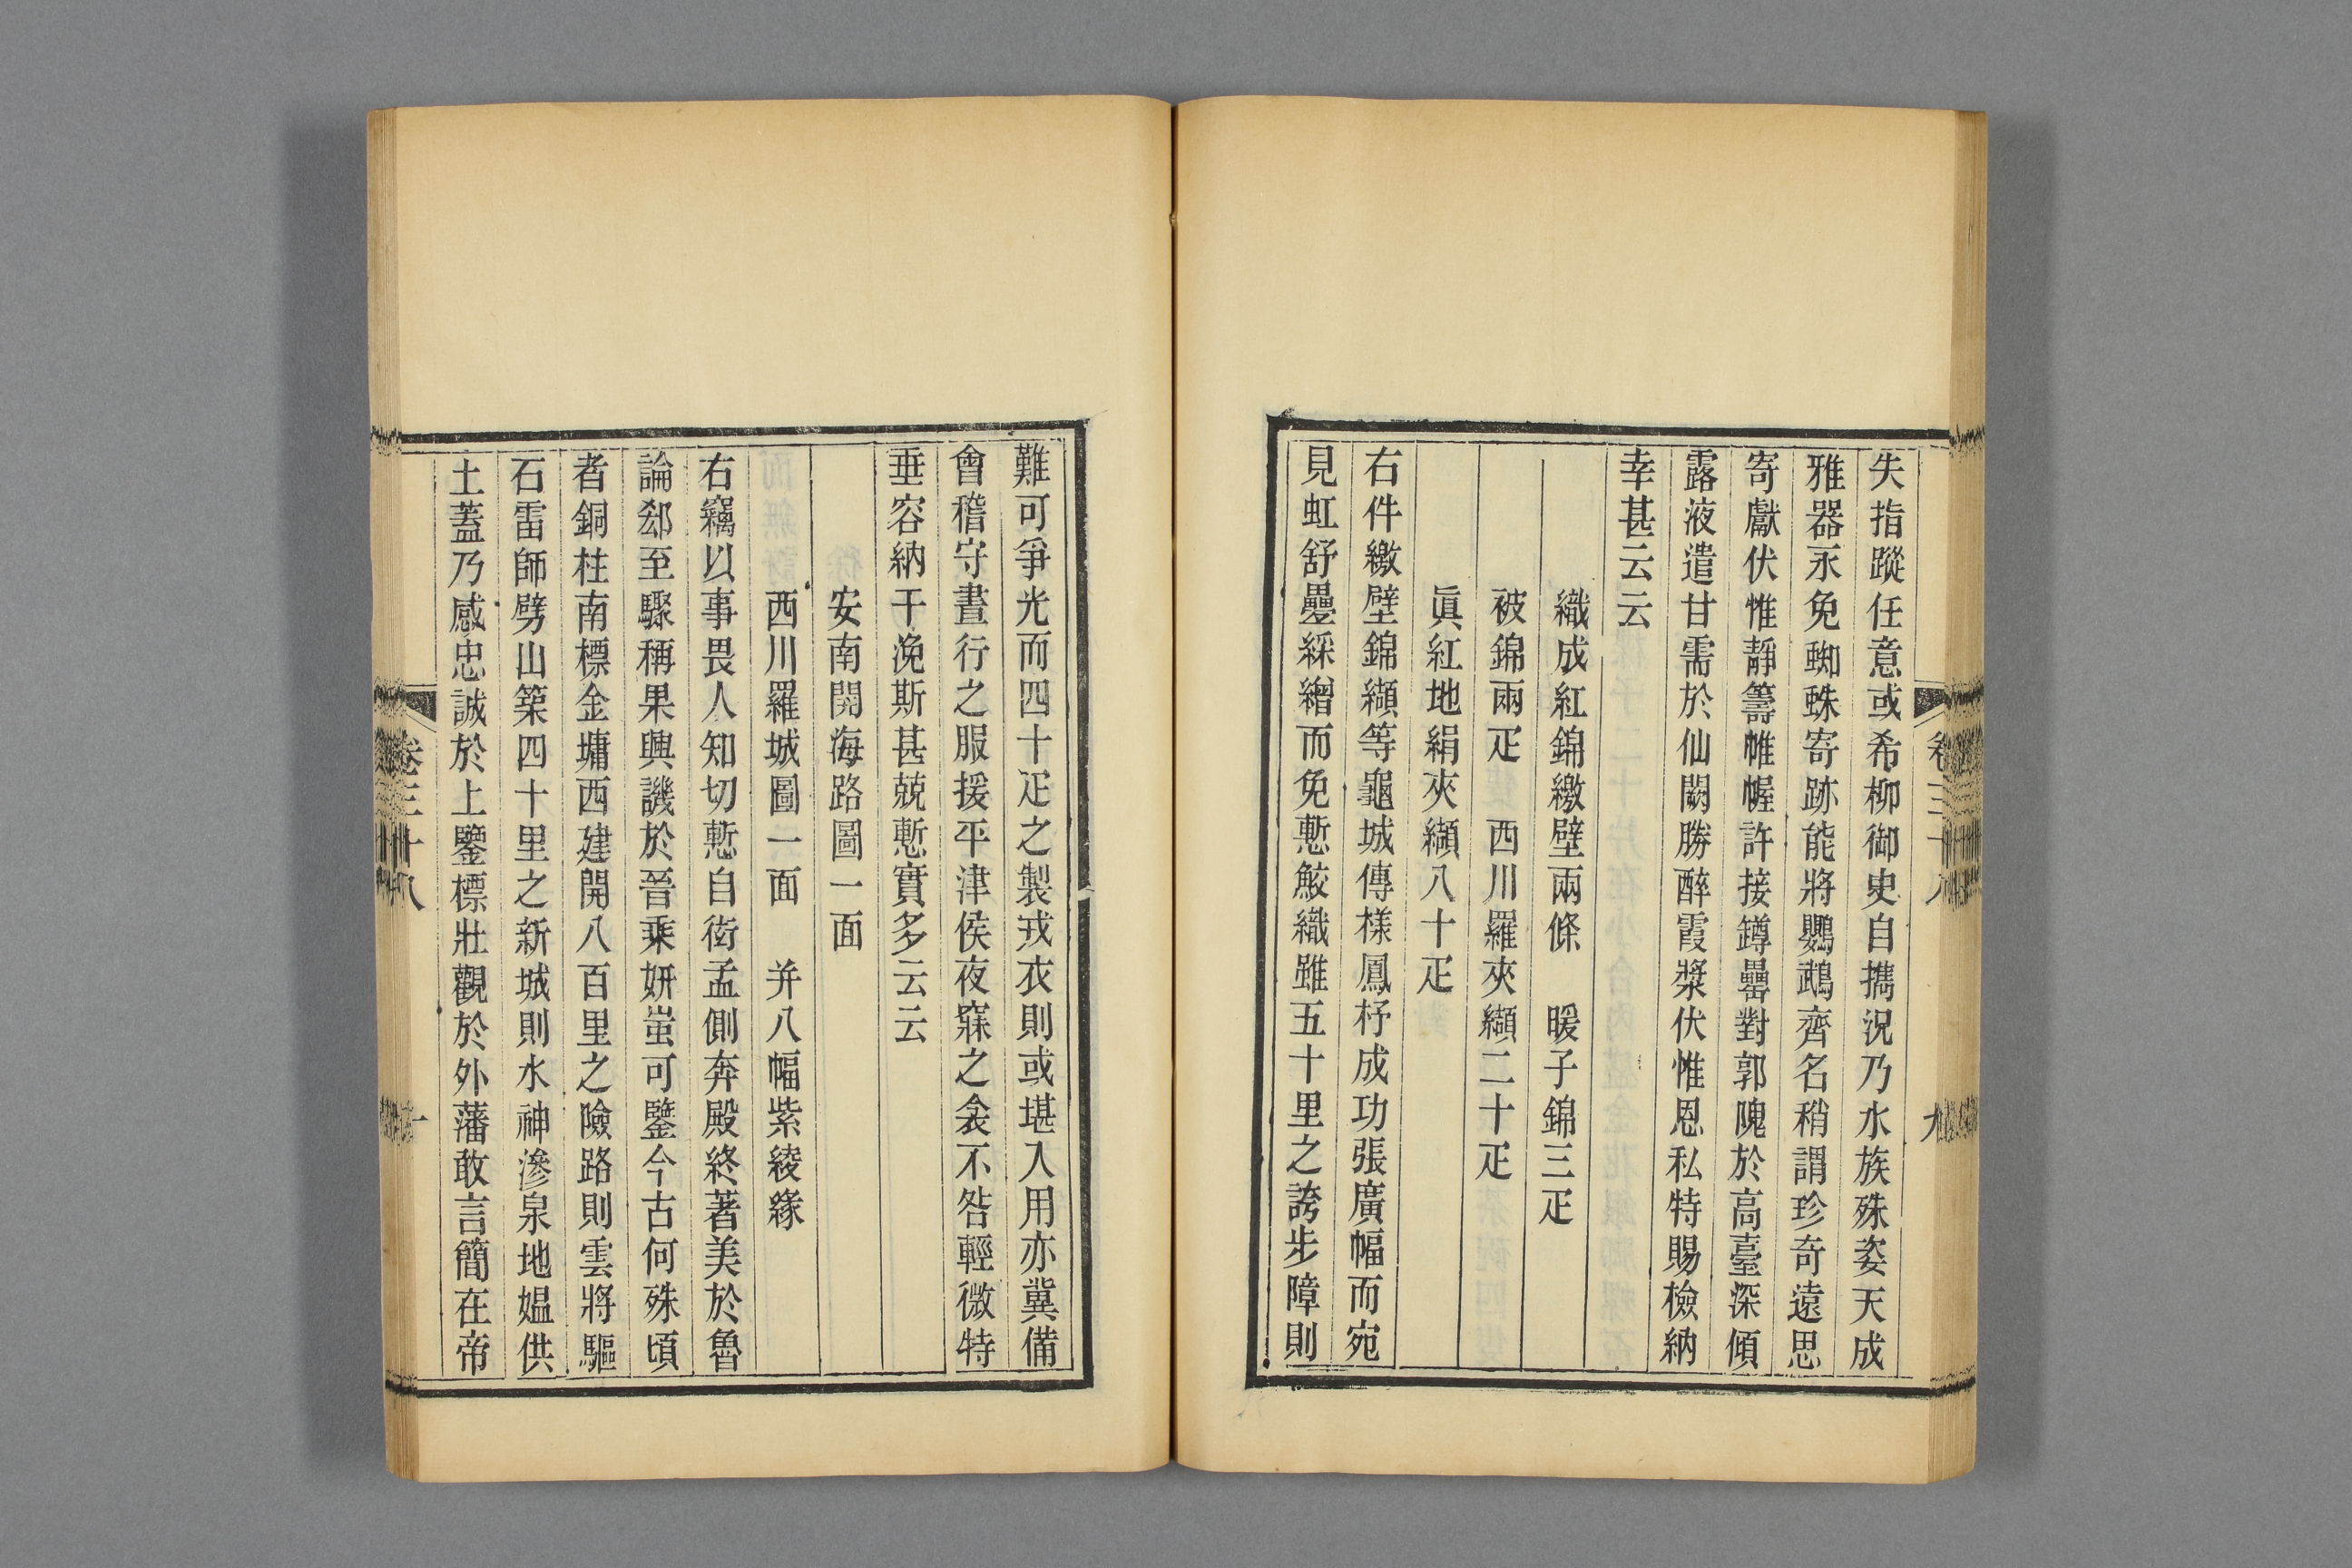 失指蹤任意或希柳御史自攜況乃水族殊姿天成
雅器永免蜘蛛寄跡能將鸚鵡齊名稍謂珍奇遠思
寄獻伏惟靜籌帷幄許接罇罍對郭隗於高臺深傾
露液遣甘需於仙闕勝醉霞漿伏惟恩私特賜檢納
幸甚云云
織成紅錦繳壁兩條　暖子錦三疋
被錦兩疋　西川羅夾纈二十疋
眞紅地絹夾纈八十疋
右件繳壁錦纈等龜城傳樣鳳杼成功張廣幅而宛
見虹舒疊綵繒而免慙鮫織雖五十里之誇步障則
卷三十八
九
難可爭光而四十疋之製戎衣則或堪入用亦冀備
會稽守晝行之服援平津侯夜寐之衾不咎輕微特
垂容納干浼斯甚兢慙實多云云
安南開海路圖一面
西川羅城圖一面　并八幅紫綾緣
右竊以事畏人知切慙自衒孟側奔殿終著美於魯
論郄至驟稱果興譏於晉乘妍蚩可鑒今古何殊頃
者銅柱南標金墉西建開八百里之險路則雲將驅
石雷師劈山築四十里之新城則水神滲泉地媼供
土蓋乃感忠誠於上鑒標壯觀於外藩敢言簡在帝
卷三十八
十